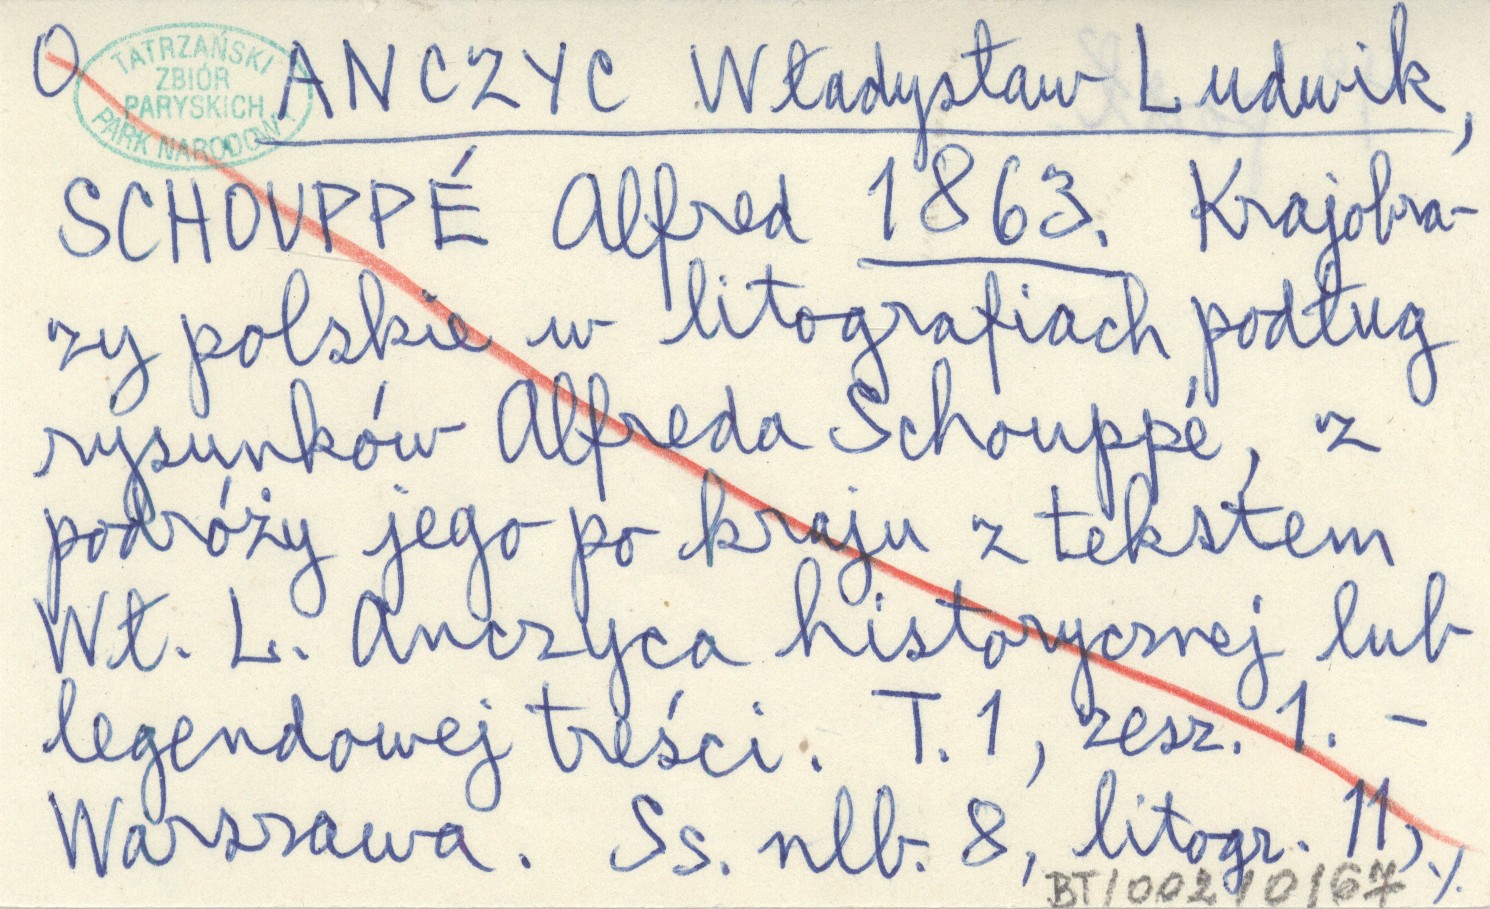 O ANCZYC Władysław Ludwik,
TATRZAŃSKI
ZBIÓR
PARYSKICH
PARK NARODOWY
SCHOUPPÉ Alfred 1863. Krajobra-
zy polskie w litografiach podług
rysunków Alfreda Schouppé, z
podróży jego po kraju z tekstem
Wł. L. Anczyca historycznej lub
legendowej treści. T. 1, zesz. 1. -
Warszawa. Ss. nlb. 8, litogr. 11,
BT/002/0/67